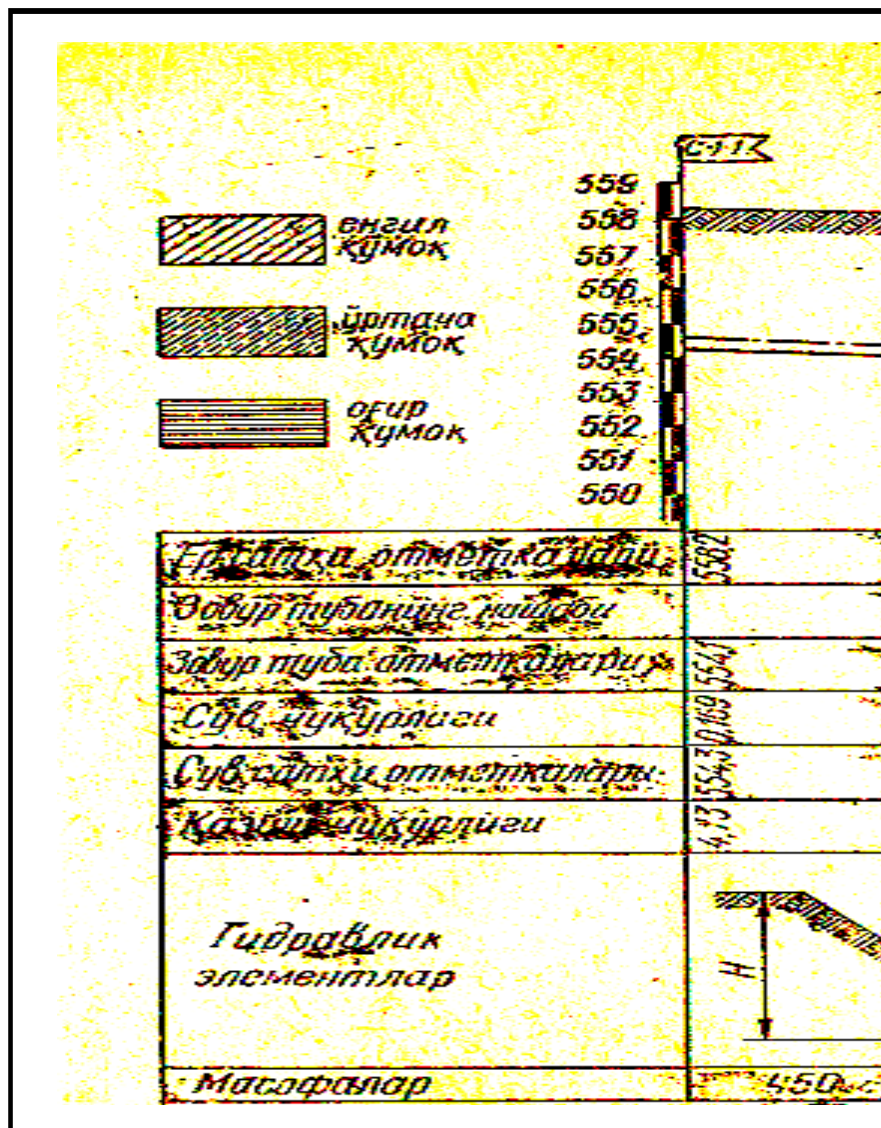 С-1-1
559
558
557
556
555
554
553
552
551
550
енгил
қумоқ
ўртача
қумоқ
оғир
қумоқ
Ер сатҳи отметкалари
558,2
Зовур тубанинг нишаби
Зовур туба отметкалари
554,1
Сув чуқурлиги
0,169
Сув сатҳи отметкалари
554,3
Қазиш чуқурлиги
4,13
Гидравлик
элементлар
H
Масофалар
450